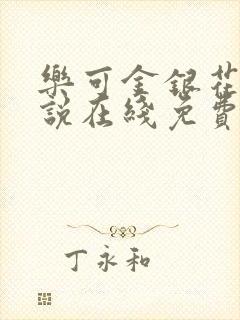 樂可金銀花
說在綫免費
丁永和